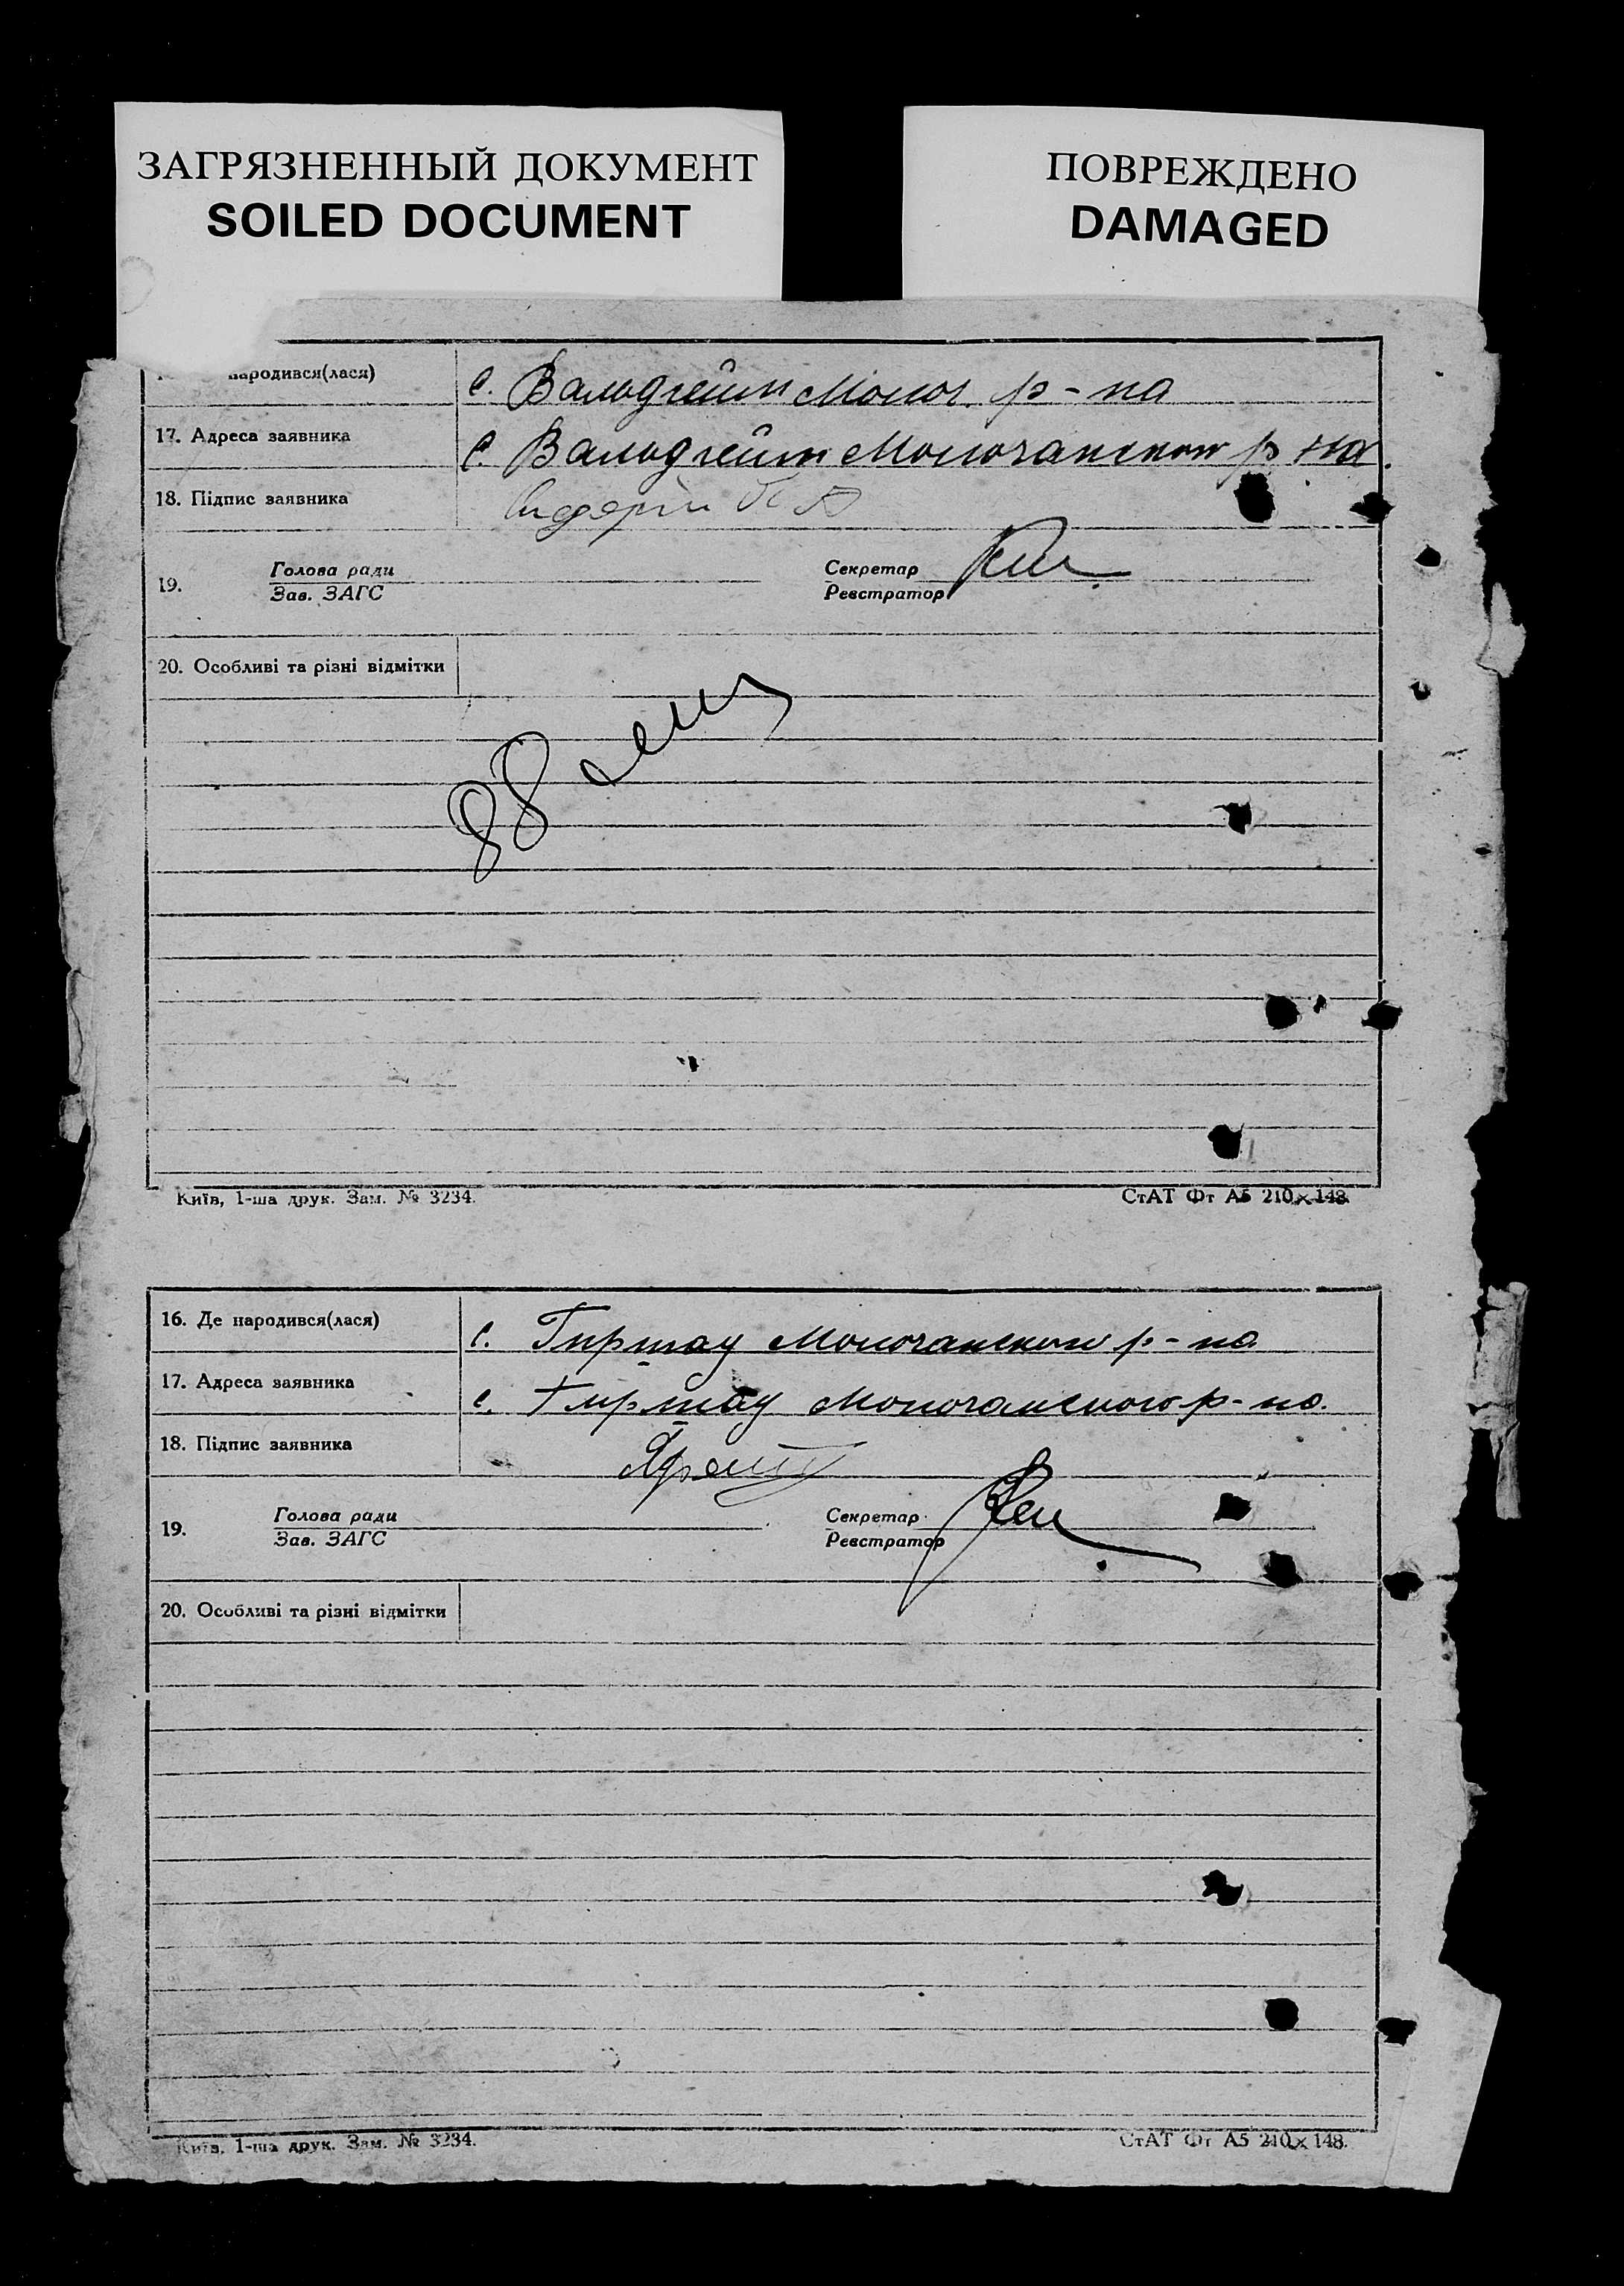 ЗАГРЯЗНЕННЫЙ ДОКУМЕНТ
SOILED DOCUMENT
ПОВРЕЖДЕНО
DAMAGED
народився(лася) с. Вальдгейм Молоч. р-на
17. Адреса заявника с. Вальдгейм Молочанского р-на.
18. Підпис заявника
19. Голова ради Секретар
Зав. ЗАГС Реєстратор
20. Особливі та різні відмітки
88
Київ, 1-ша друк. Зам. № 3234. СтАТ Фт А5 210×148.
16. Де народився(лася) с. Гиршау Молочанского р-на
17. Адреса заявника с. Гиршау Молочанского р-на.
18. Підпис заявника
19. Голова ради Секретар
Зав. ЗАГС Реєстратор
20. Особливі та різні відмітки
Київ, 1-ша друк. Зам. № 3234. СтАТ Фт А5 210×148.